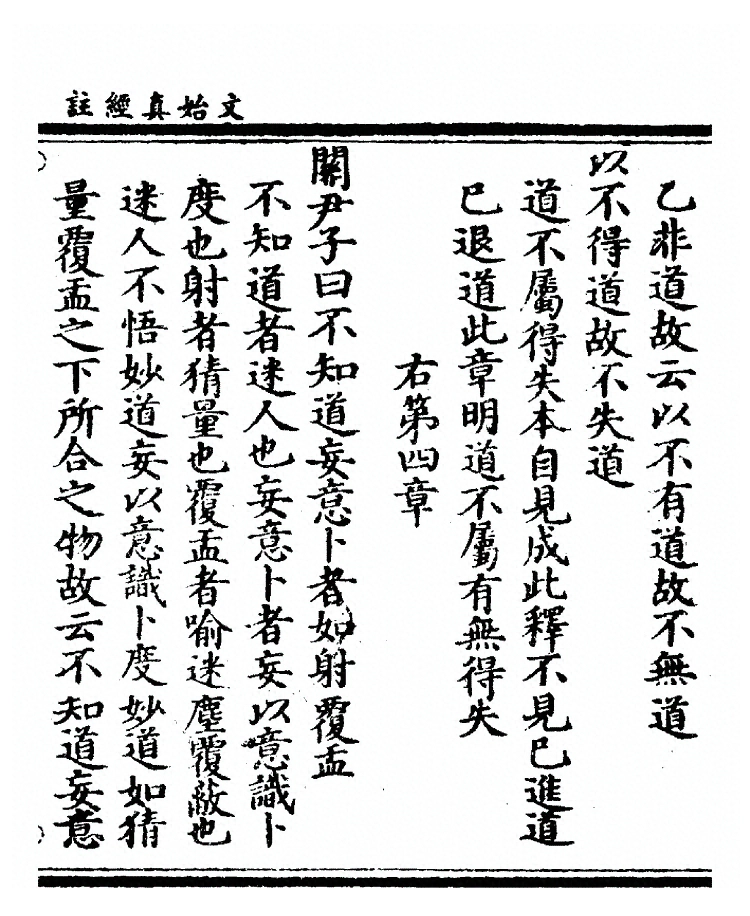 文始真經註
乙非道故云以不有道故不無道
以不得道故不失道
道不屬得失本自見成此釋不見巳進道
巳退道此章明道不屬有無得失
右第四章
關尹子曰不知道妄意卜者如射覆盂
不知道者迷人也妄意卜者妄以意識卜
度也射者猜量也覆盂者喻迷塵覆蔽也
迷人不悟妙道妄以意識卜度妙道如猜
量覆盂之下所合之物故云不知道妄意